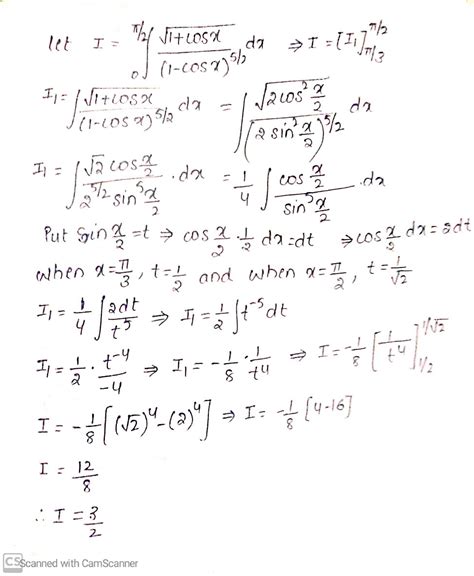 let I = ∫₀^{π/2} √(1+cosx) / (1-cosx)^{5/2} dx ⇒ I = [I₁]_{π/3}^{π/2}
I₁ = ∫ √(1+cosx) / (1-cosx)^{5/2} dx = ∫ √(2cos² x/2) / (2 sin² x/2)^{5/2} dx
I₁ = ∫ √2 cos x/2 / 2^{5/2} sin⁵ x/2 . dx = 1/4 ∫ cos x/2 / sin⁵ x/2 . dx
Put sin x/2 = t ⇒ cos x/2 . 1/2 dx = dt ⇒ cos x/2 dx = 2dt
when x = π/3, t = 1/2 and when x = π/2, t = 1/√2
I₁ = 1/4 ∫ 2dt / t⁵ ⇒ I₁ = 1/2 ∫ t⁻⁵ dt
I₁ = 1/2 . t⁻⁴ / -4 ⇒ I₁ = -1/8 . 1/t⁴ ⇒ I = -1/8 [1/t⁴]_{1/2}^{1/√2}
I = -1/8 [(√2)⁴ - (2)⁴] ⇒ I = -1/8 [4-16]
I = 12/8
∴ I = 3/2
CS Scanned with CamScanner